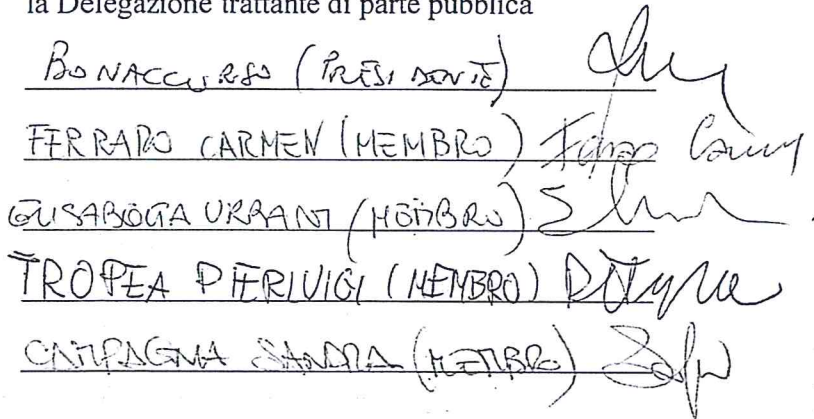 la Delegazione trattante di parte pubblica
BONACCURSO (PRESIDENTE)
FERRARO CARMEN (MEMBRO)
ELISABETTA URBANI (MEMBRO)
TROPEA PIERLUIGI (MEMBRO)
CAMPAGNA SANDRA (MEMBRO)